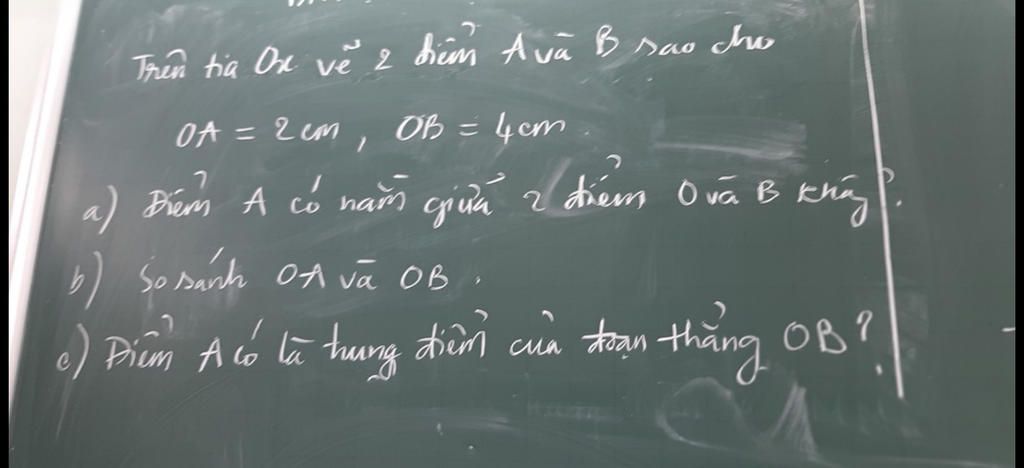 Trên tia Ox vẽ 2 điểm A và B sao cho
OA = 2cm, OB = 4cm.
a) Điểm A có nằm giữa 2 điểm O và B không?.
b) So sánh OA và OB.
c) Điểm A có là trung điểm của đoạn thẳng OB?